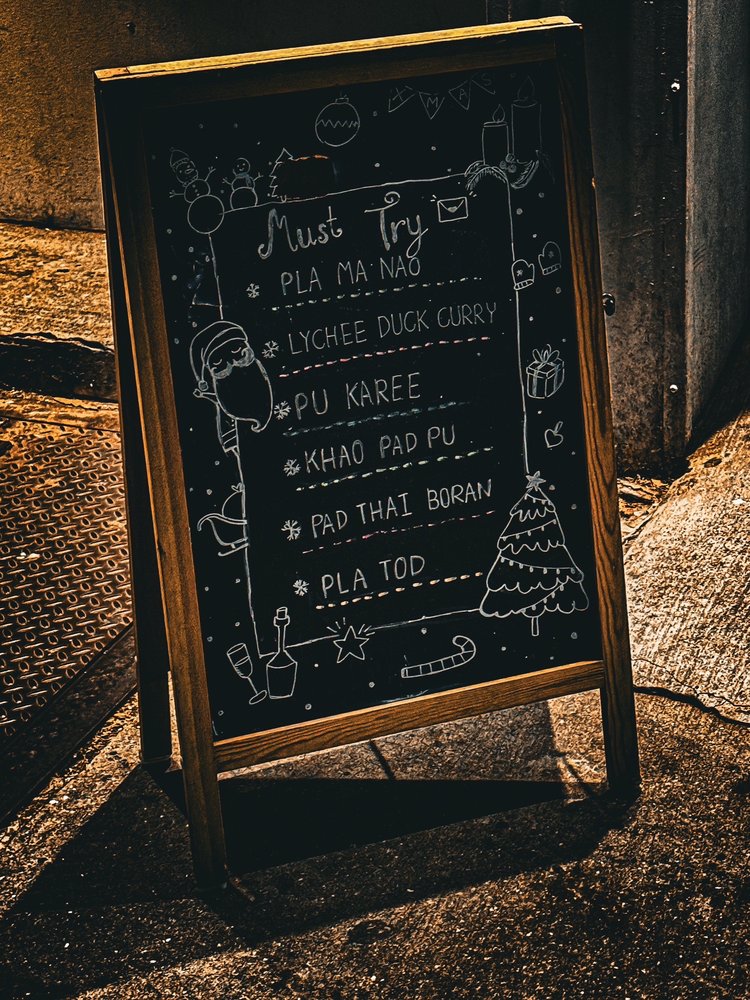 XMAS
Must Try
PLA MA NAO
LYCHEE DUCK CURRY
PU KAREE
KHAO PAD PU
PAD THAI BORAN
PLA TOD